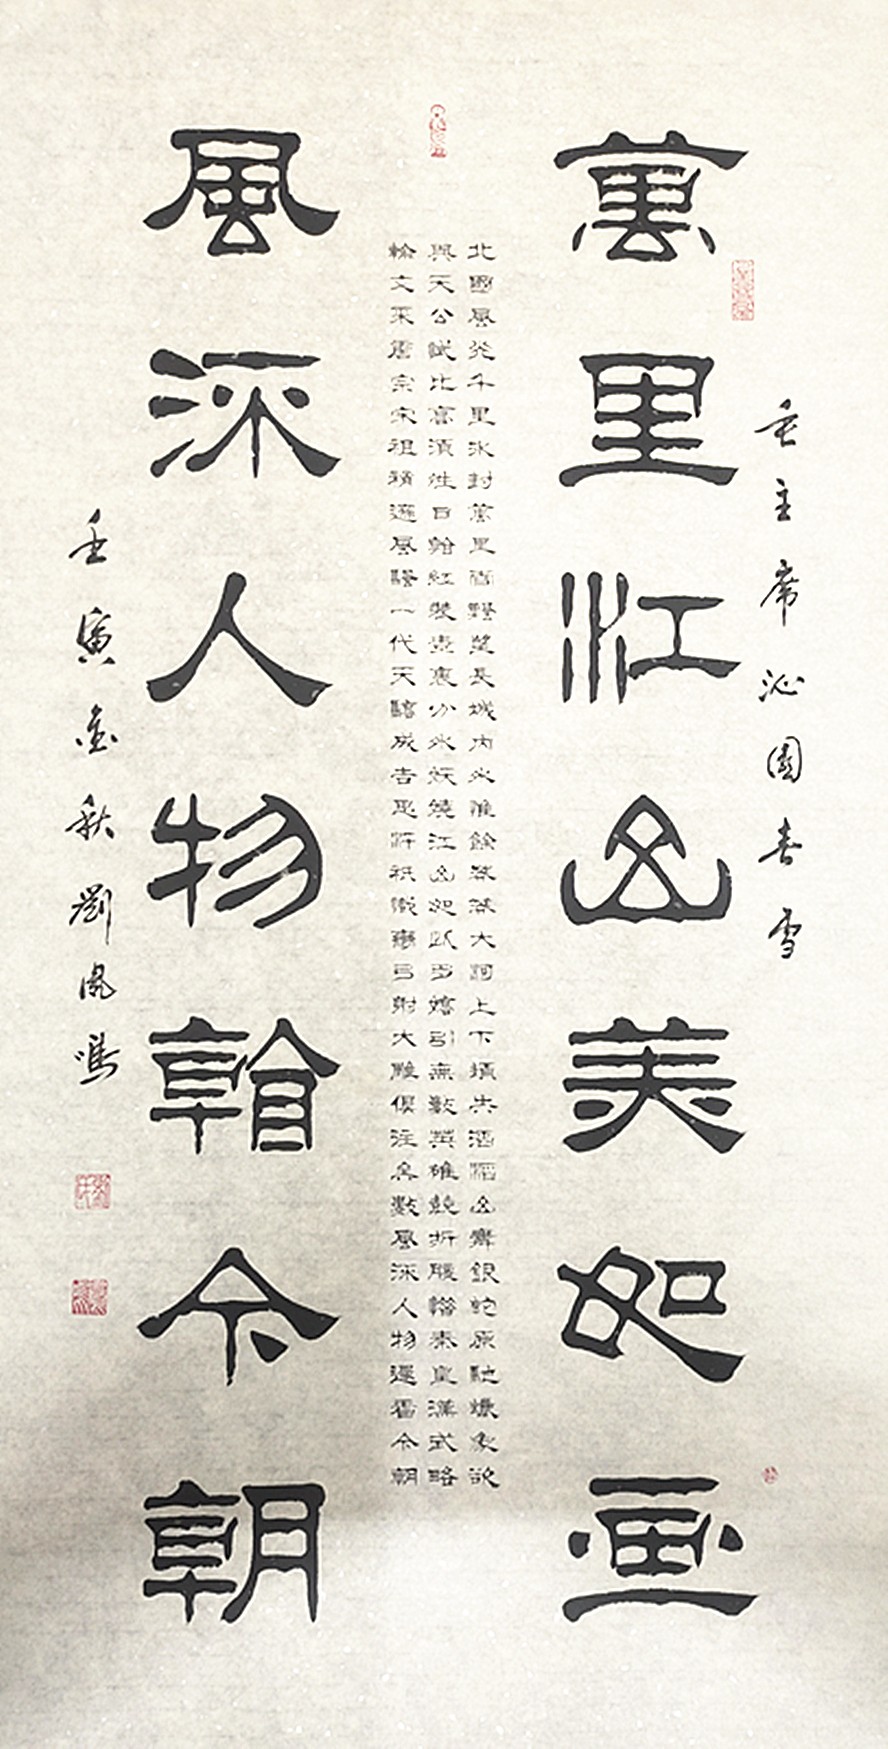 毛主席沁園春雪
萬里江山美如畫
北國風光千里冰封萬里雪飄望長城內外惟餘莽莽大河上下頓失滔滔山舞銀蛇原馳蠟象欲
與天公試比高須晴日看紅裝素裹分外妖嬈江山如此多嬌引無數英雄競折腰惜秦皇漢武略
輸文采唐宗宋祖稍遜風騷一代天驕成吉思汗祇識彎弓射大雕俱往矣數風流人物還看今朝
風流人物看今朝
壬寅金秋劉鳳鳴